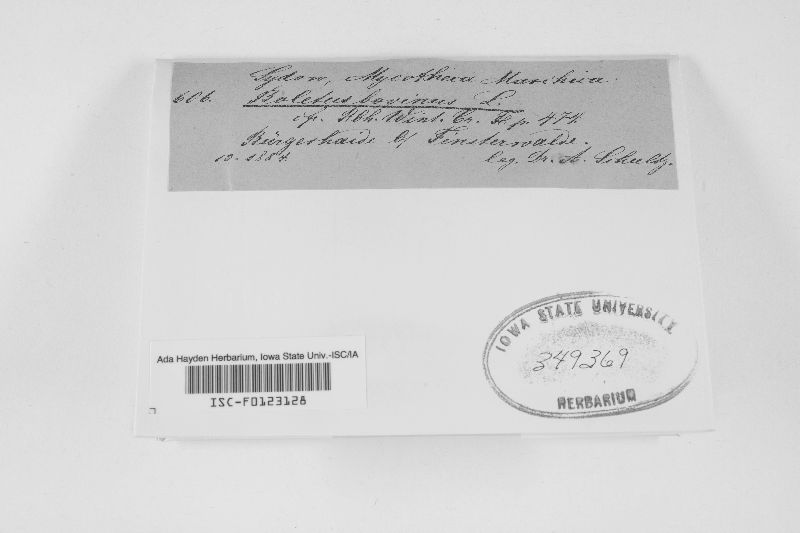 Sydow, Mycotheca Marchica.
606. Boletus bovinus L.
cfr. Rbh. Wint. Cr. Fl. p. 474.
Bürgerhaide b/ Finsterwalde.
10. 1884. leg. Dr. A. Schultz.
IOWA STATE UNIVERSITY
349369
HERBARIUM
Ada Hayden Herbarium, Iowa State Univ.-ISC/IA
ISC-F0123128